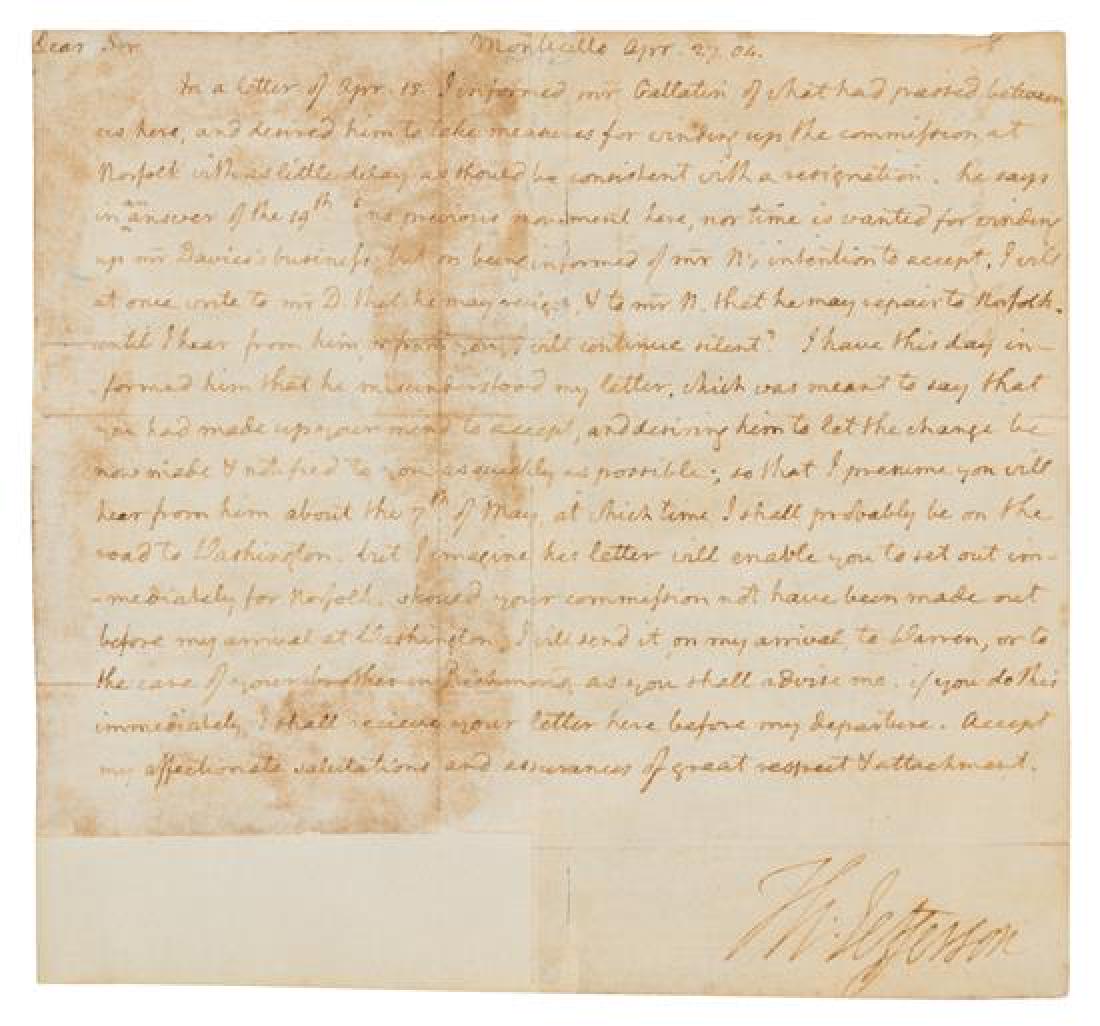 Dear Sir Monticello Apr. 27. 04.
In a letter of Apr. 15. I informed mr Gallatin of what had passed between
us here, and desired him to take measures for winding up the commission at
Norfolk with as little delay as should be consistent with a resignation. he says
in an answer of the 19th 'no previous movement here, nor time is wanted for winding
up mr Davies's business, but on being informed of mr N's intention to accept, I will
at once write to mr D. that he may resign, & to mr N. that he may repair to Norfolk.
until I hear from him, or from you, I will continue silent.' I have this day in-
-formed him that he misunderstood my letter, which was meant to say that
you had made up your mind to accept, and desiring him to let the change be
now made & notified to you as quickly as possible; so that I presume you will
hear from him about the 7th of May, at which time I shall probably be on the
road to Washington. but I imagine his letter will enable you to set out im-
-mediately for Norfolk. should your commission not have been made out
before my arrival at Washington, I will send it, on my arrival, to Warren, or to
the care of your brother in Richmond, as you shall advise me. if you do this
immediately, I shall recieve your letter here before my departure. Accept
my affectionate salutations and assurances of great respect & attachment.
Th: Jefferson